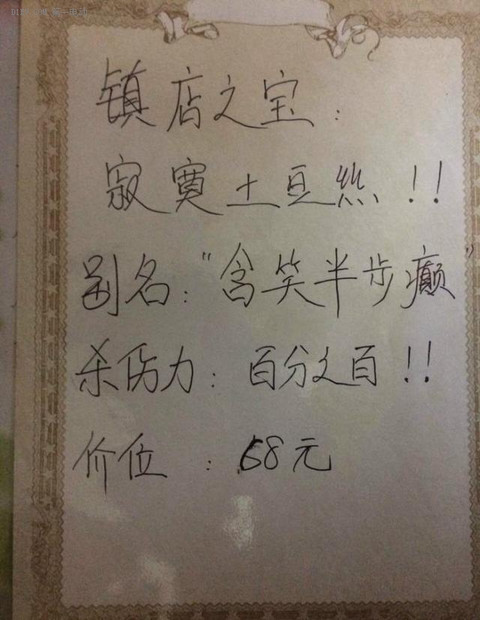 镇店之宝：
寂寞土豆丝！！
别名："含笑半步癫"
杀伤力：百分之百！！
价位：68元